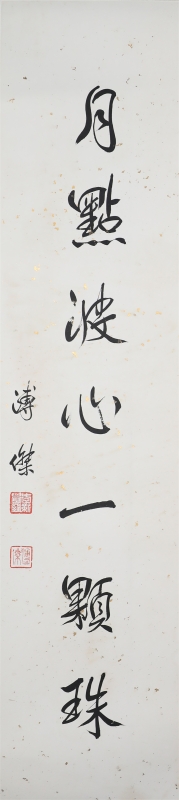 月點波心一顆珠
溥傑